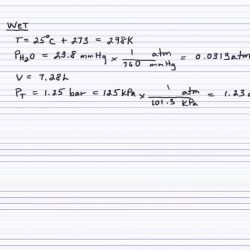 WET
T = 25°C + 273 = 298K
PH2O = 23.8 mmHg × 1 atm / 760 mmHg = 0.0313 atm
V = 7.28L
PT = 1.25 bar = 125 kPa × 1 atm / 101.3 kPa = 1.23